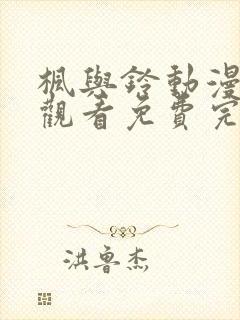 楓與鈴動漫
觀看免費完
洪魯杰